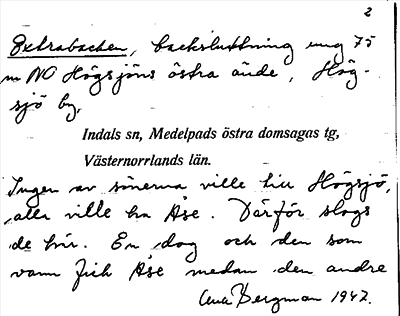 2
Extrabacken, backsluttning ung 75
m NO Högsjöns östra ände, Hög-
sjö by.
Indals sn, Medelpads östra domsagas tg,
Västernorrlands län.
Ingen av sönerna ville till Högsjö,
alla ville ha Åse. Därför slogs
de här. En dog och den som
vann fick Åse medan den andre
Bergman 1947.